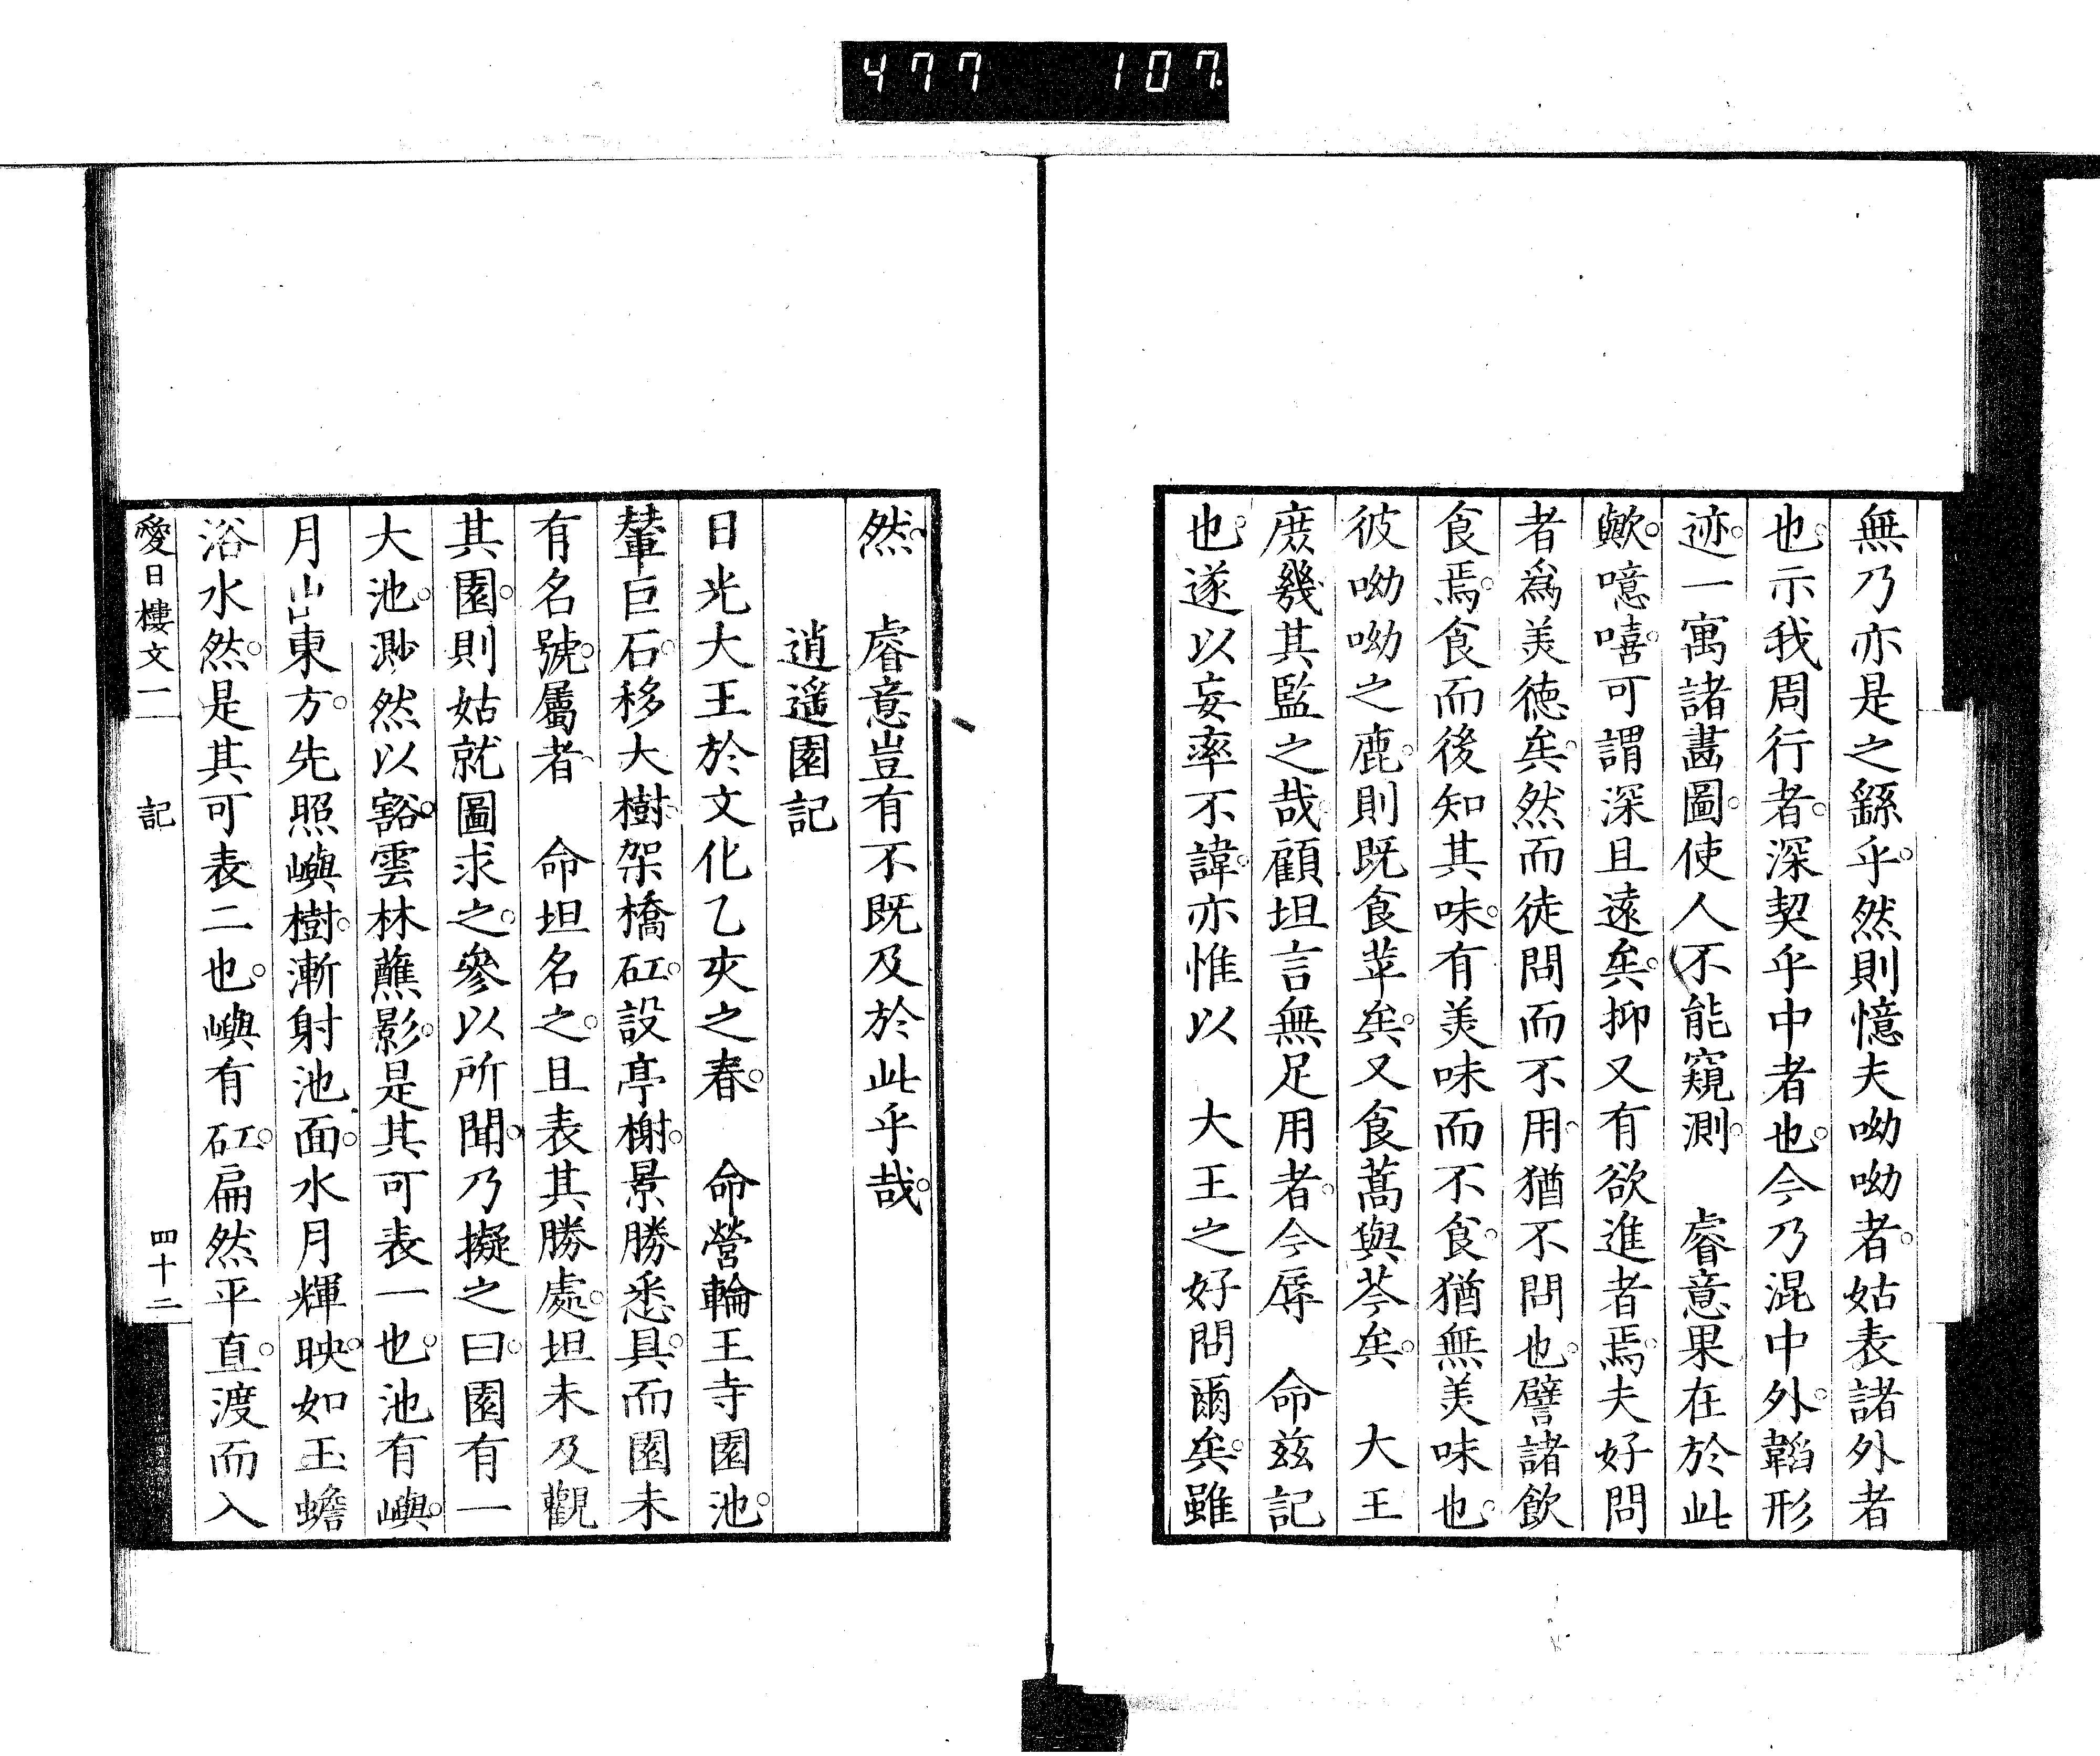 477 107.
無乃亦是之繇乎。然則憶夫呦呦者。姑表諸外者
也。示我周行者。深契乎中者也。今乃混中外。韜形
迹。一寓諸畵圖。使人不能窺測。 睿意果在於此
歟。噫嘻。可謂深且遠矣。抑又有欲進者焉。夫好問
者爲美徳矣。然而徒問而不用。猶不問也。譬諸飲
食焉。食而後知其味。有美味而不食。猶無美味也。
彼呦呦之鹿。則既食苹矣。又食蒿與芩矣。 大王
庻幾其監之哉。顧坦言無足用者。今辱 命兹記
也。遂以妄率不諱。亦惟以 大王之好問爾矣。雖
然。 睿意豈有不既及於此乎哉。
逍遥園記
日光大王於文化乙亥之春。 命營輪王寺園池。
輦巨石。移大樹。架橋矼。設亭榭。景勝悉具。而園未
有名號。屬者 命坦名之。且表其勝處。坦未及觀
其園。則姑就圖求之。參以所聞。乃擬之曰。園有一
大池。渺然以豁。雲林蘸影。是其可表一也。池有嶼。
月出東方。先照嶼樹。漸射池面。水月輝映。如玉蟾
浴水然。是其可表二也。嶼有矼。扁然平直。渡而入
愛日樓文一 記 四十二